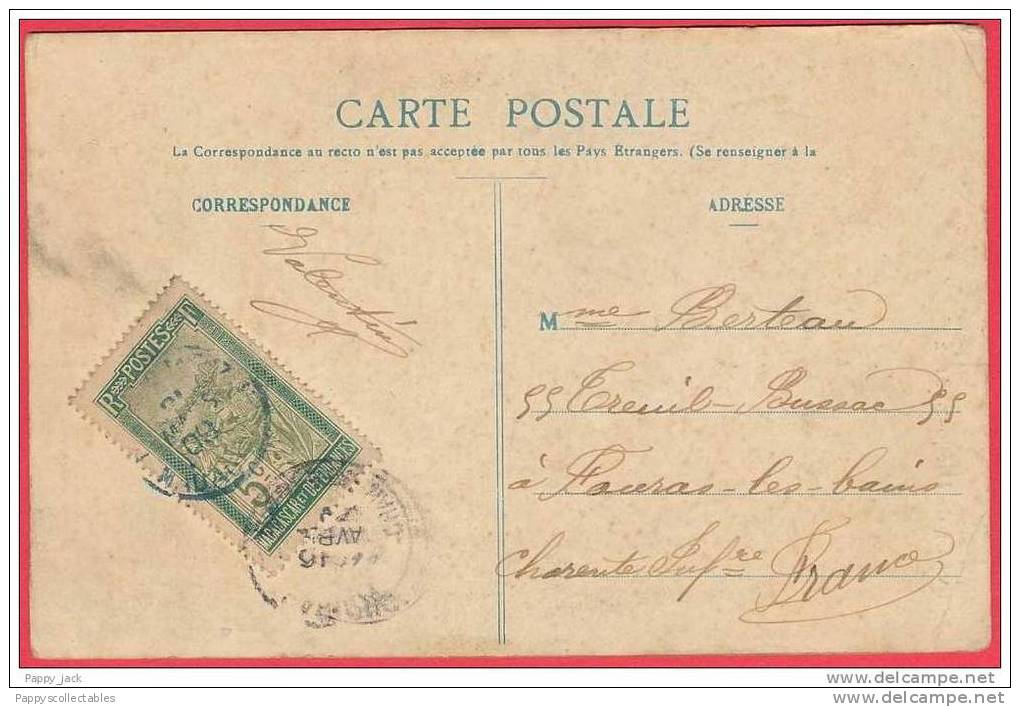 CARTE POSTALE
La Correspondance au recto n'est pas acceptée par tous les Pays Etrangers. (Se renseigner à la
CORRESPONDANCE
ADRÉSSE
Valentin
RF POSTES
MADAGASCAR ET DÉPENDANCES
AVRIL
Mme Berteau
"Treuil-Bussac"
à Fouras-les-bains
Charente Infre France
Pappy_jack
Pappyscollectables
www.delcampe.net
www.delcampe.net